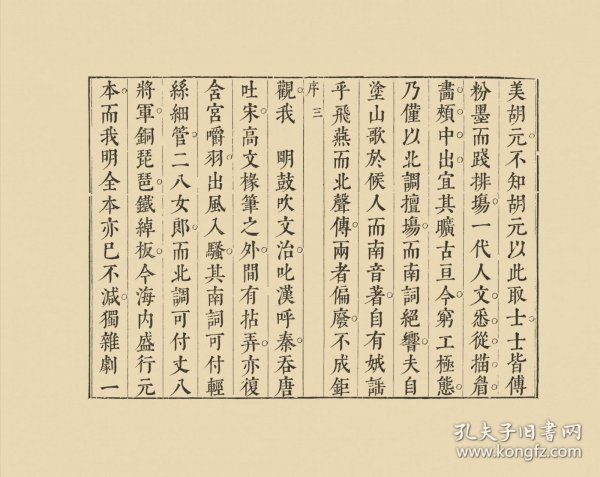 美胡元不知胡元以此取士士皆傅
粉墨而踐排塲一代人文悉從描眉
畵頰中出宜其曠古亘今窮工極態
乃僅以北調擅塲而南詞絕響夫自
塗山歌於候人而南音著自有娀謡
乎飛燕而北聲傳兩者偏廢不成鉅
序 三
觀我 明鼓吹文治叱漢呼秦吞唐
吐宋高文椽筆之外間有拈弄亦復
含宮嚼羽出風入騷其南詞可付輕
絲細管二八女郎而北調可付丈八
將軍銅琵琶鐵綽板今海內盛行元
本而我明全本亦已不減獨雜劇一
孔夫子旧书网
www.kongfz.com